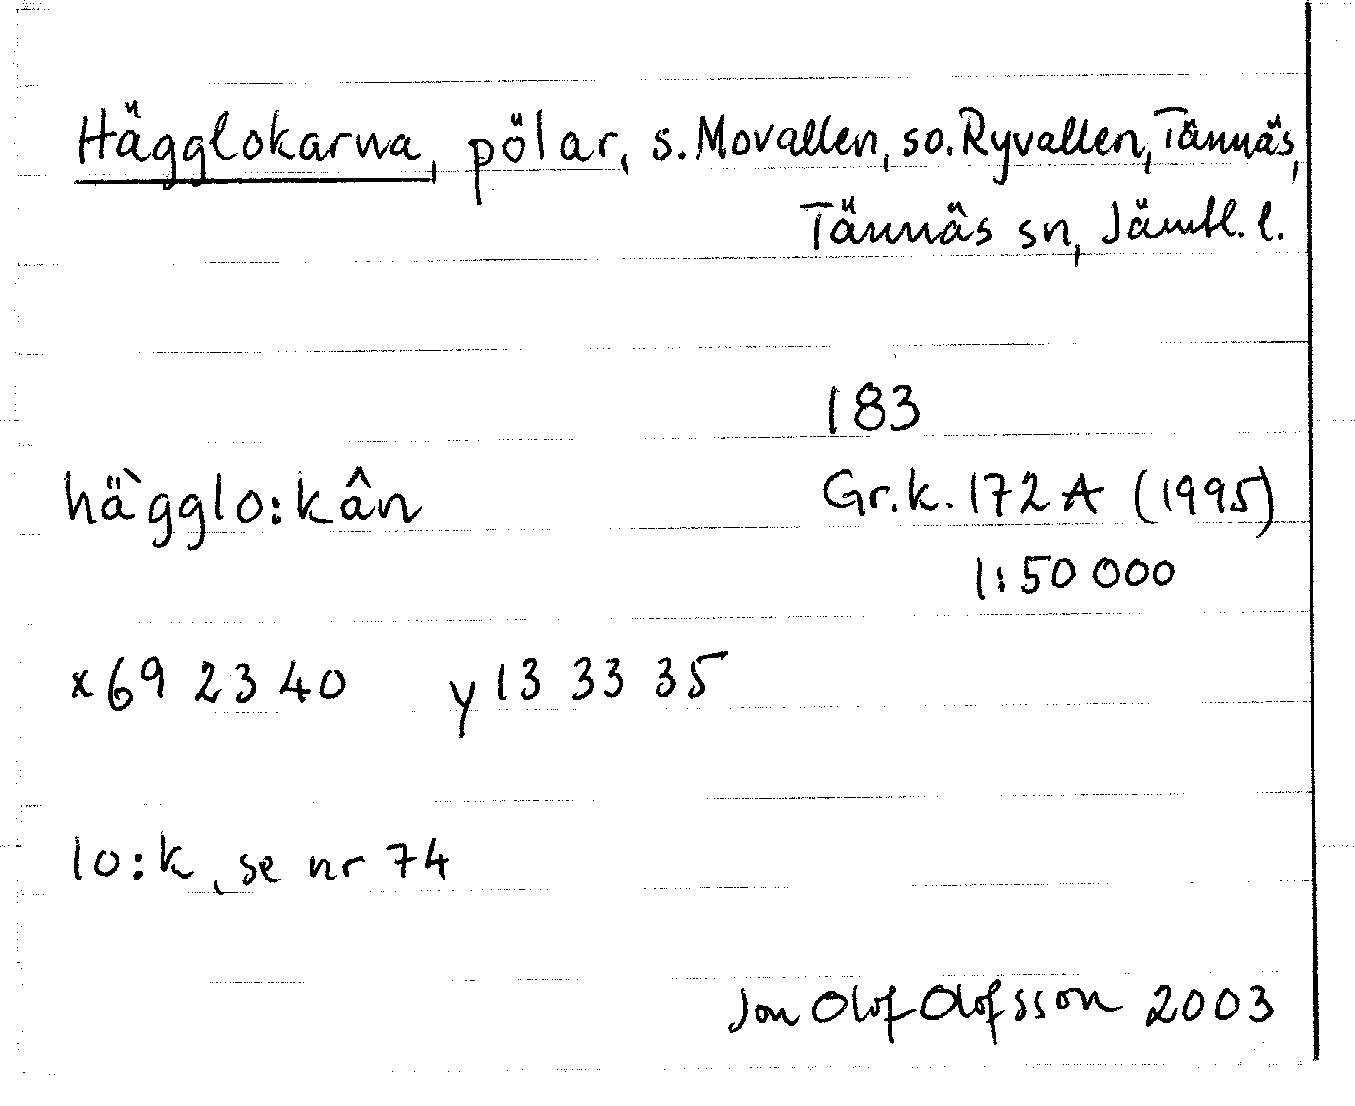 Hägglokarna, pölar, s. Movallen, so. Ryvallen, Tännäs,
Tännäs sn, Jämtl. l.
183
hä`gglo:kân
Gr.k. 172 A (1995)
1:50 000
x 69 23 40 y 13 33 35
lo:k, se nr 74
Jon Olof Olofsson 2003